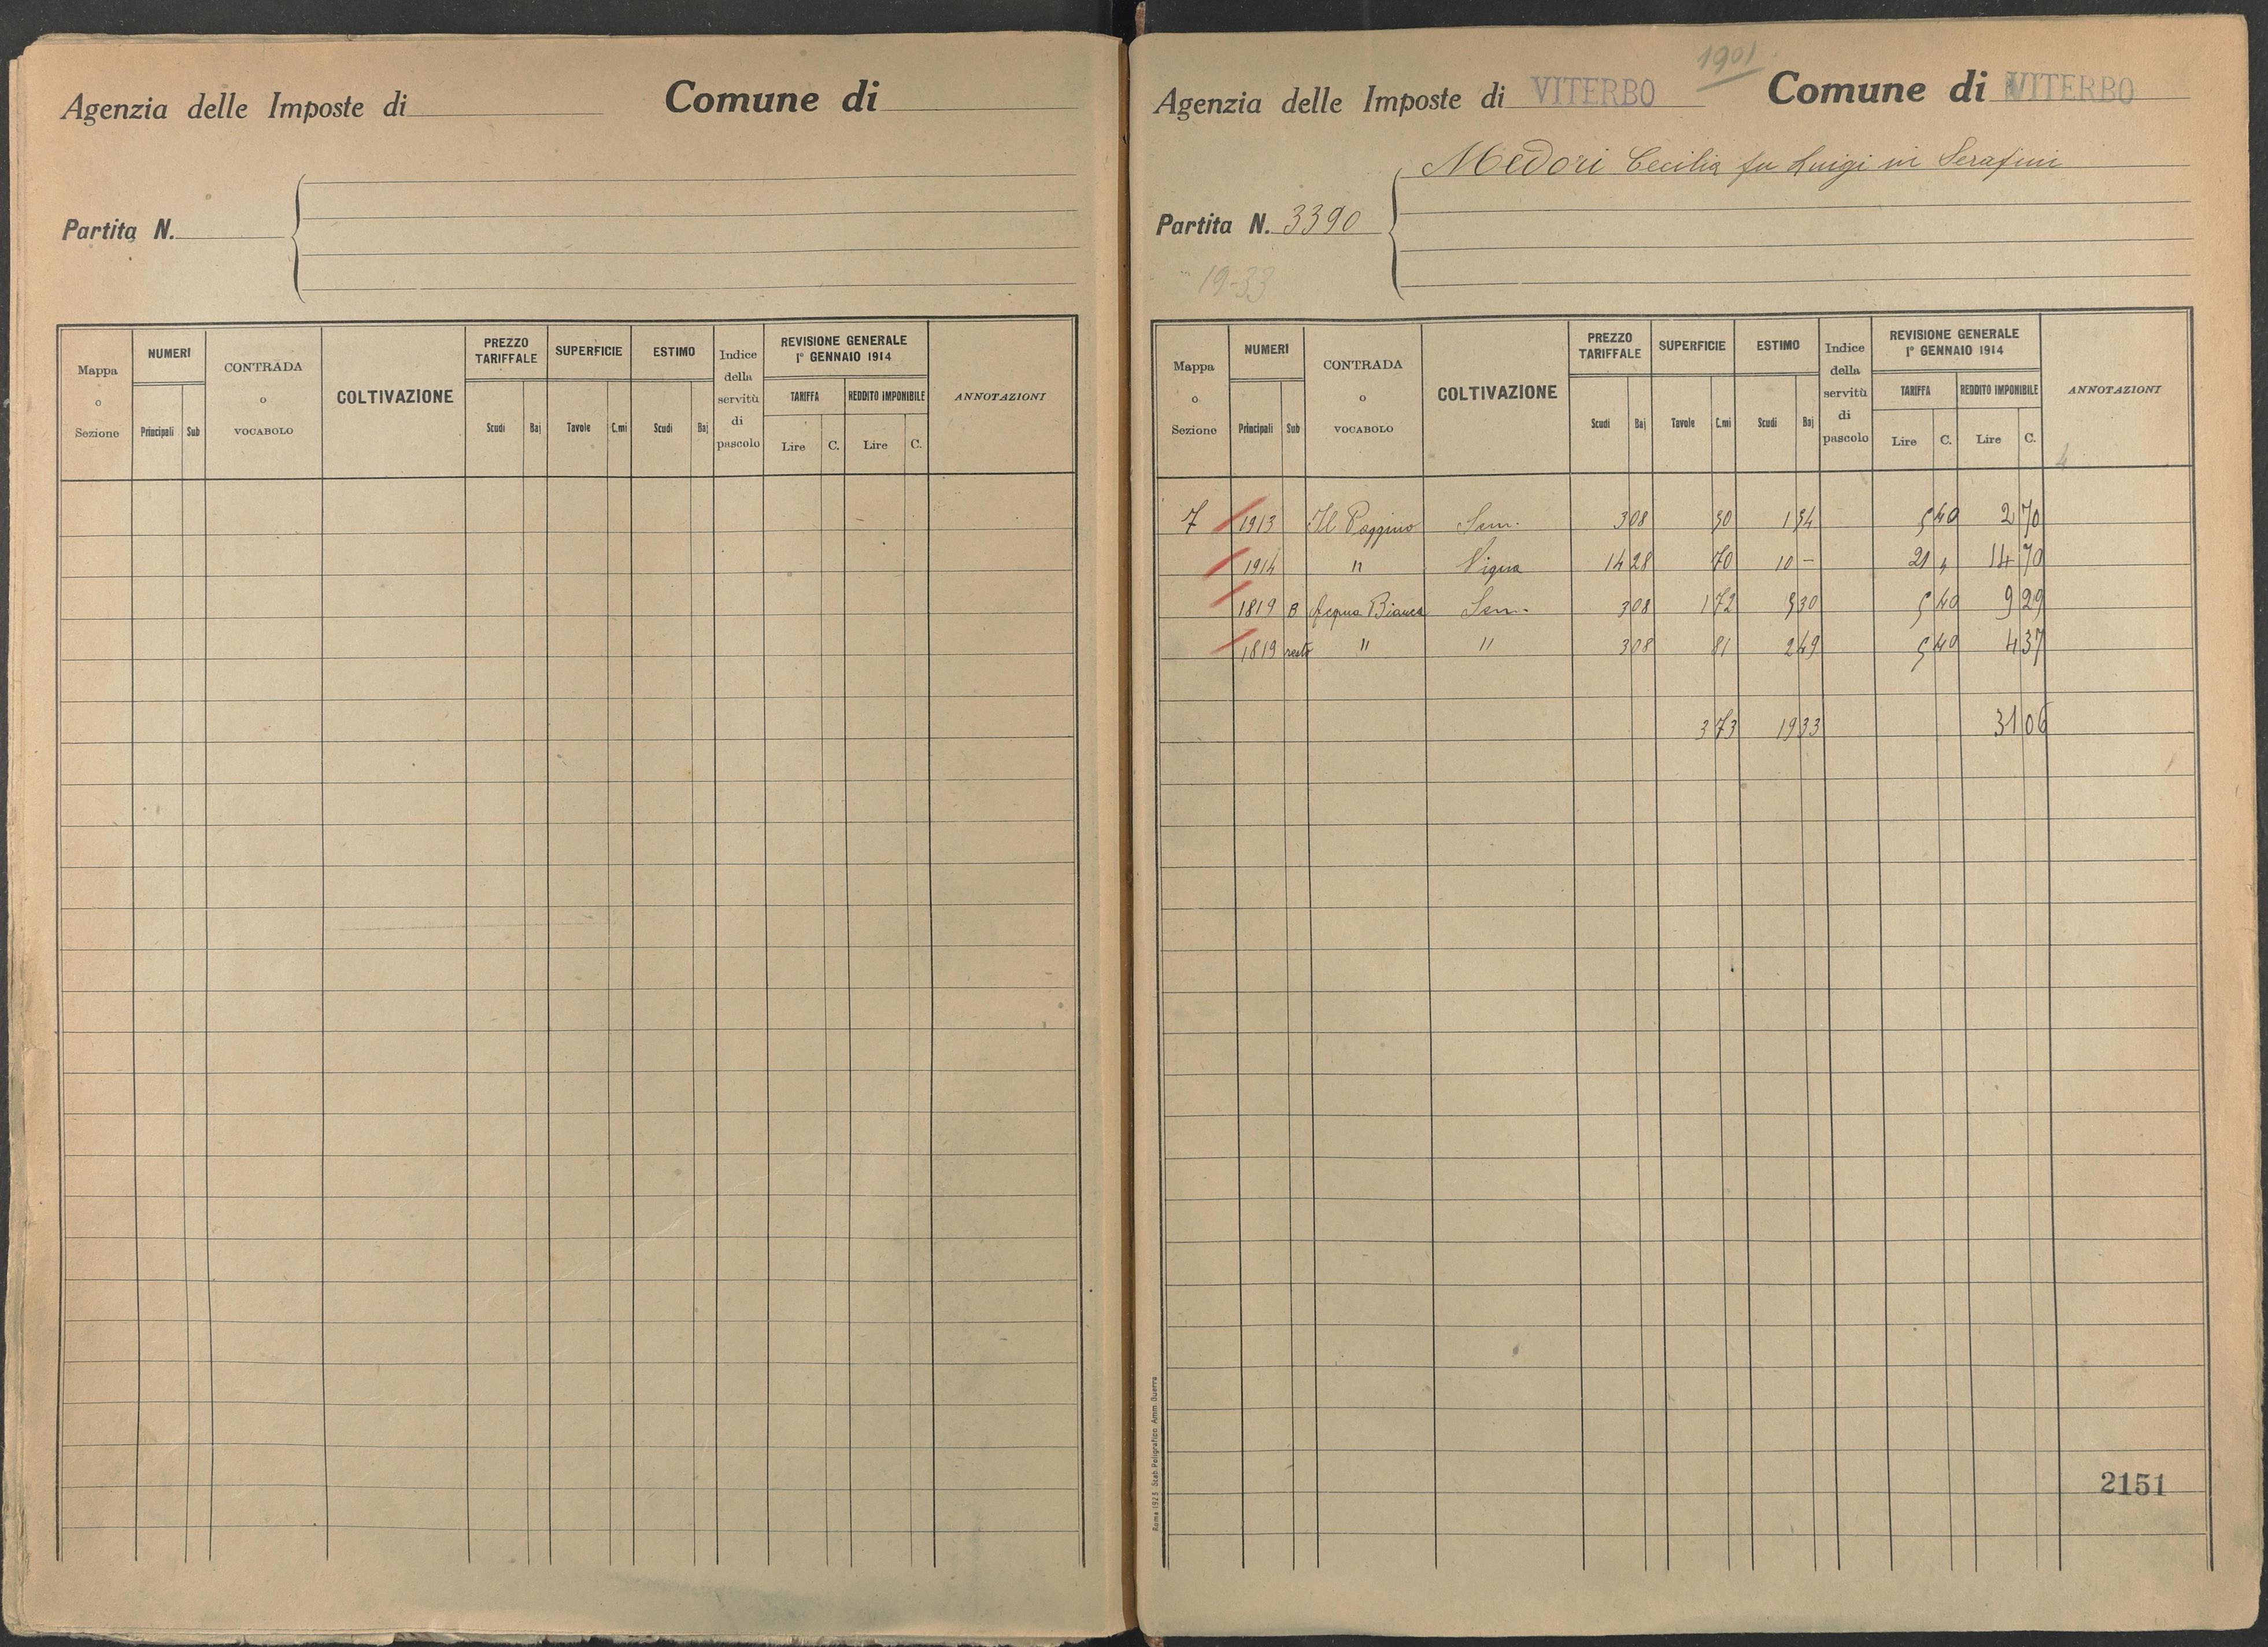 Agenzia delle Imposte di
Comune di
Partita N.
Mappa o Sezione
NUMERI
Principali
Sub
CONTRADA o VOCABOLO
COLTIVAZIONE
PREZZO TARIFFALE
Scudi
Baj
SUPERFICIE
Tavole
C.mi
ESTIMO
Scudi
Baj
Indice della servitù di pascolo
REVISIONE GENERALE
1° GENNAIO 1914
TARIFFA
Lire
C.
REDDITO IMPONIBILE
Lire
C.
ANNOTAZIONI
1901
Agenzia delle Imposte di VITERBO
Comune di VITERBO
Medori Cecilia fu Luigi in Serafini
Partita N. 3390
19-33
Mappa o Sezione
NUMERI
Principali
Sub
CONTRADA o VOCABOLO
COLTIVAZIONE
PREZZO TARIFFALE
Scudi
Baj
SUPERFICIE
Tavole
C.mi
ESTIMO
Scudi
Baj
Indice della servitù di pascolo
REVISIONE GENERALE
1° GENNAIO 1914
TARIFFA
Lire
C.
REDDITO IMPONIBILE
Lire
C.
ANNOTAZIONI
4
7 1913 Il Poggino Sem. 3 08 50 1 54 5 40 2 70
1914 " Vigna 14 28 70 10 - 21 " 14 70
1819 B Acqua Bianca Sem. 3 08 1 72 5 30 5 40 9 29
1819 resto " " 3 08 81 2 49 5 40 4 37
3 73 19 33 31 06
Roma 1925 Stab. Poligrafico Amm. Guerra
2151